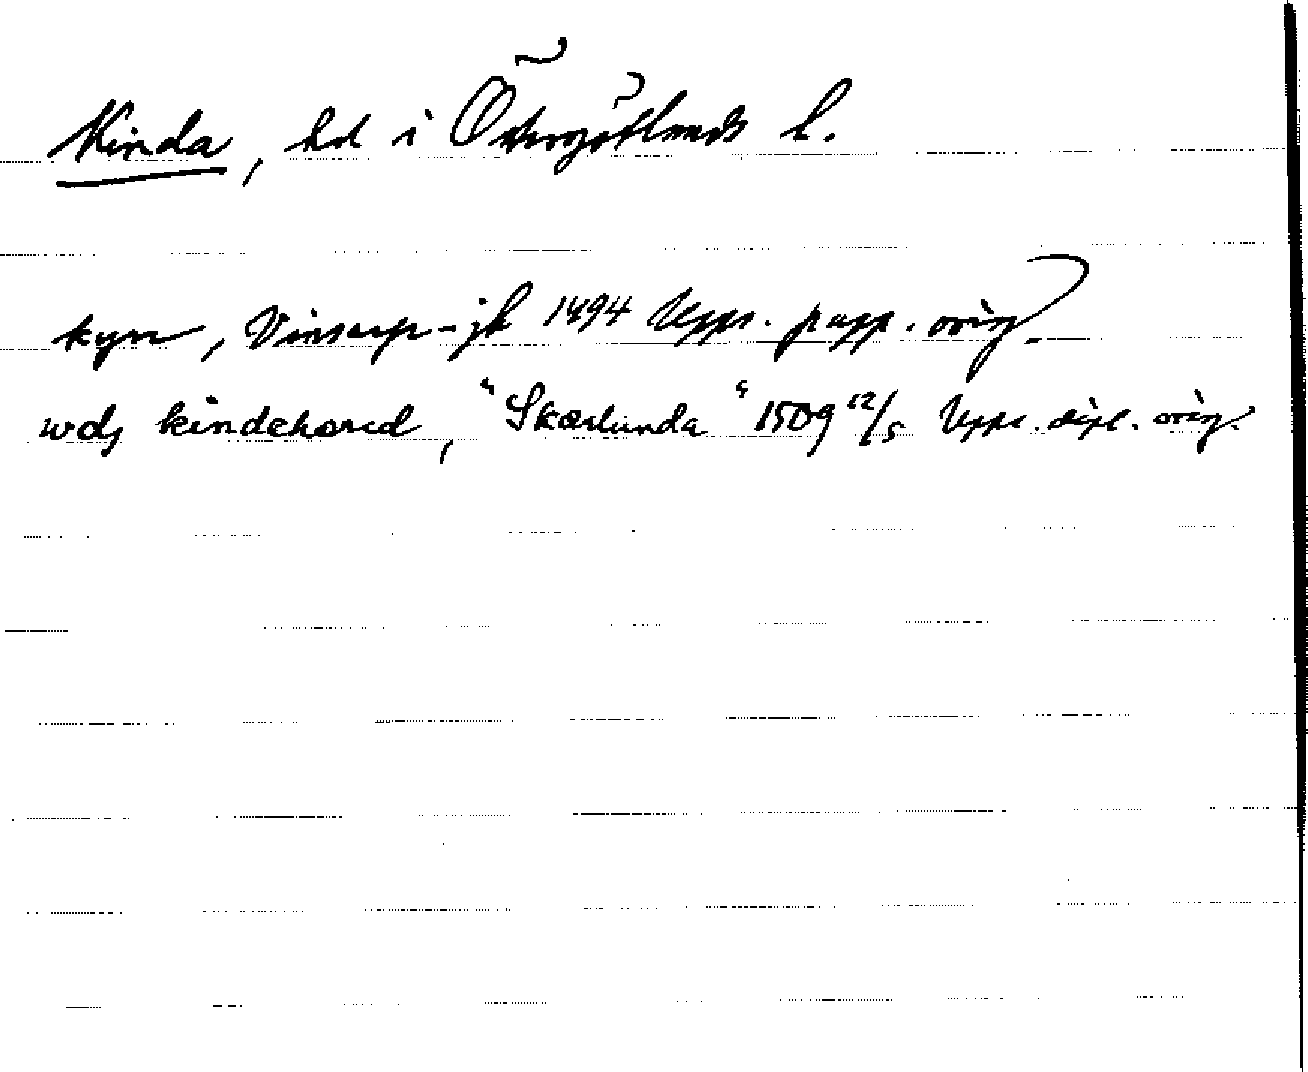 Kinda, hd i Östergötlands l.
kyn, Vinsarp-jb 1494 Upps. papp. orig.
wdj kindehæred, "Skærlunda" 1509 12/5 Upps. dipl. orig.